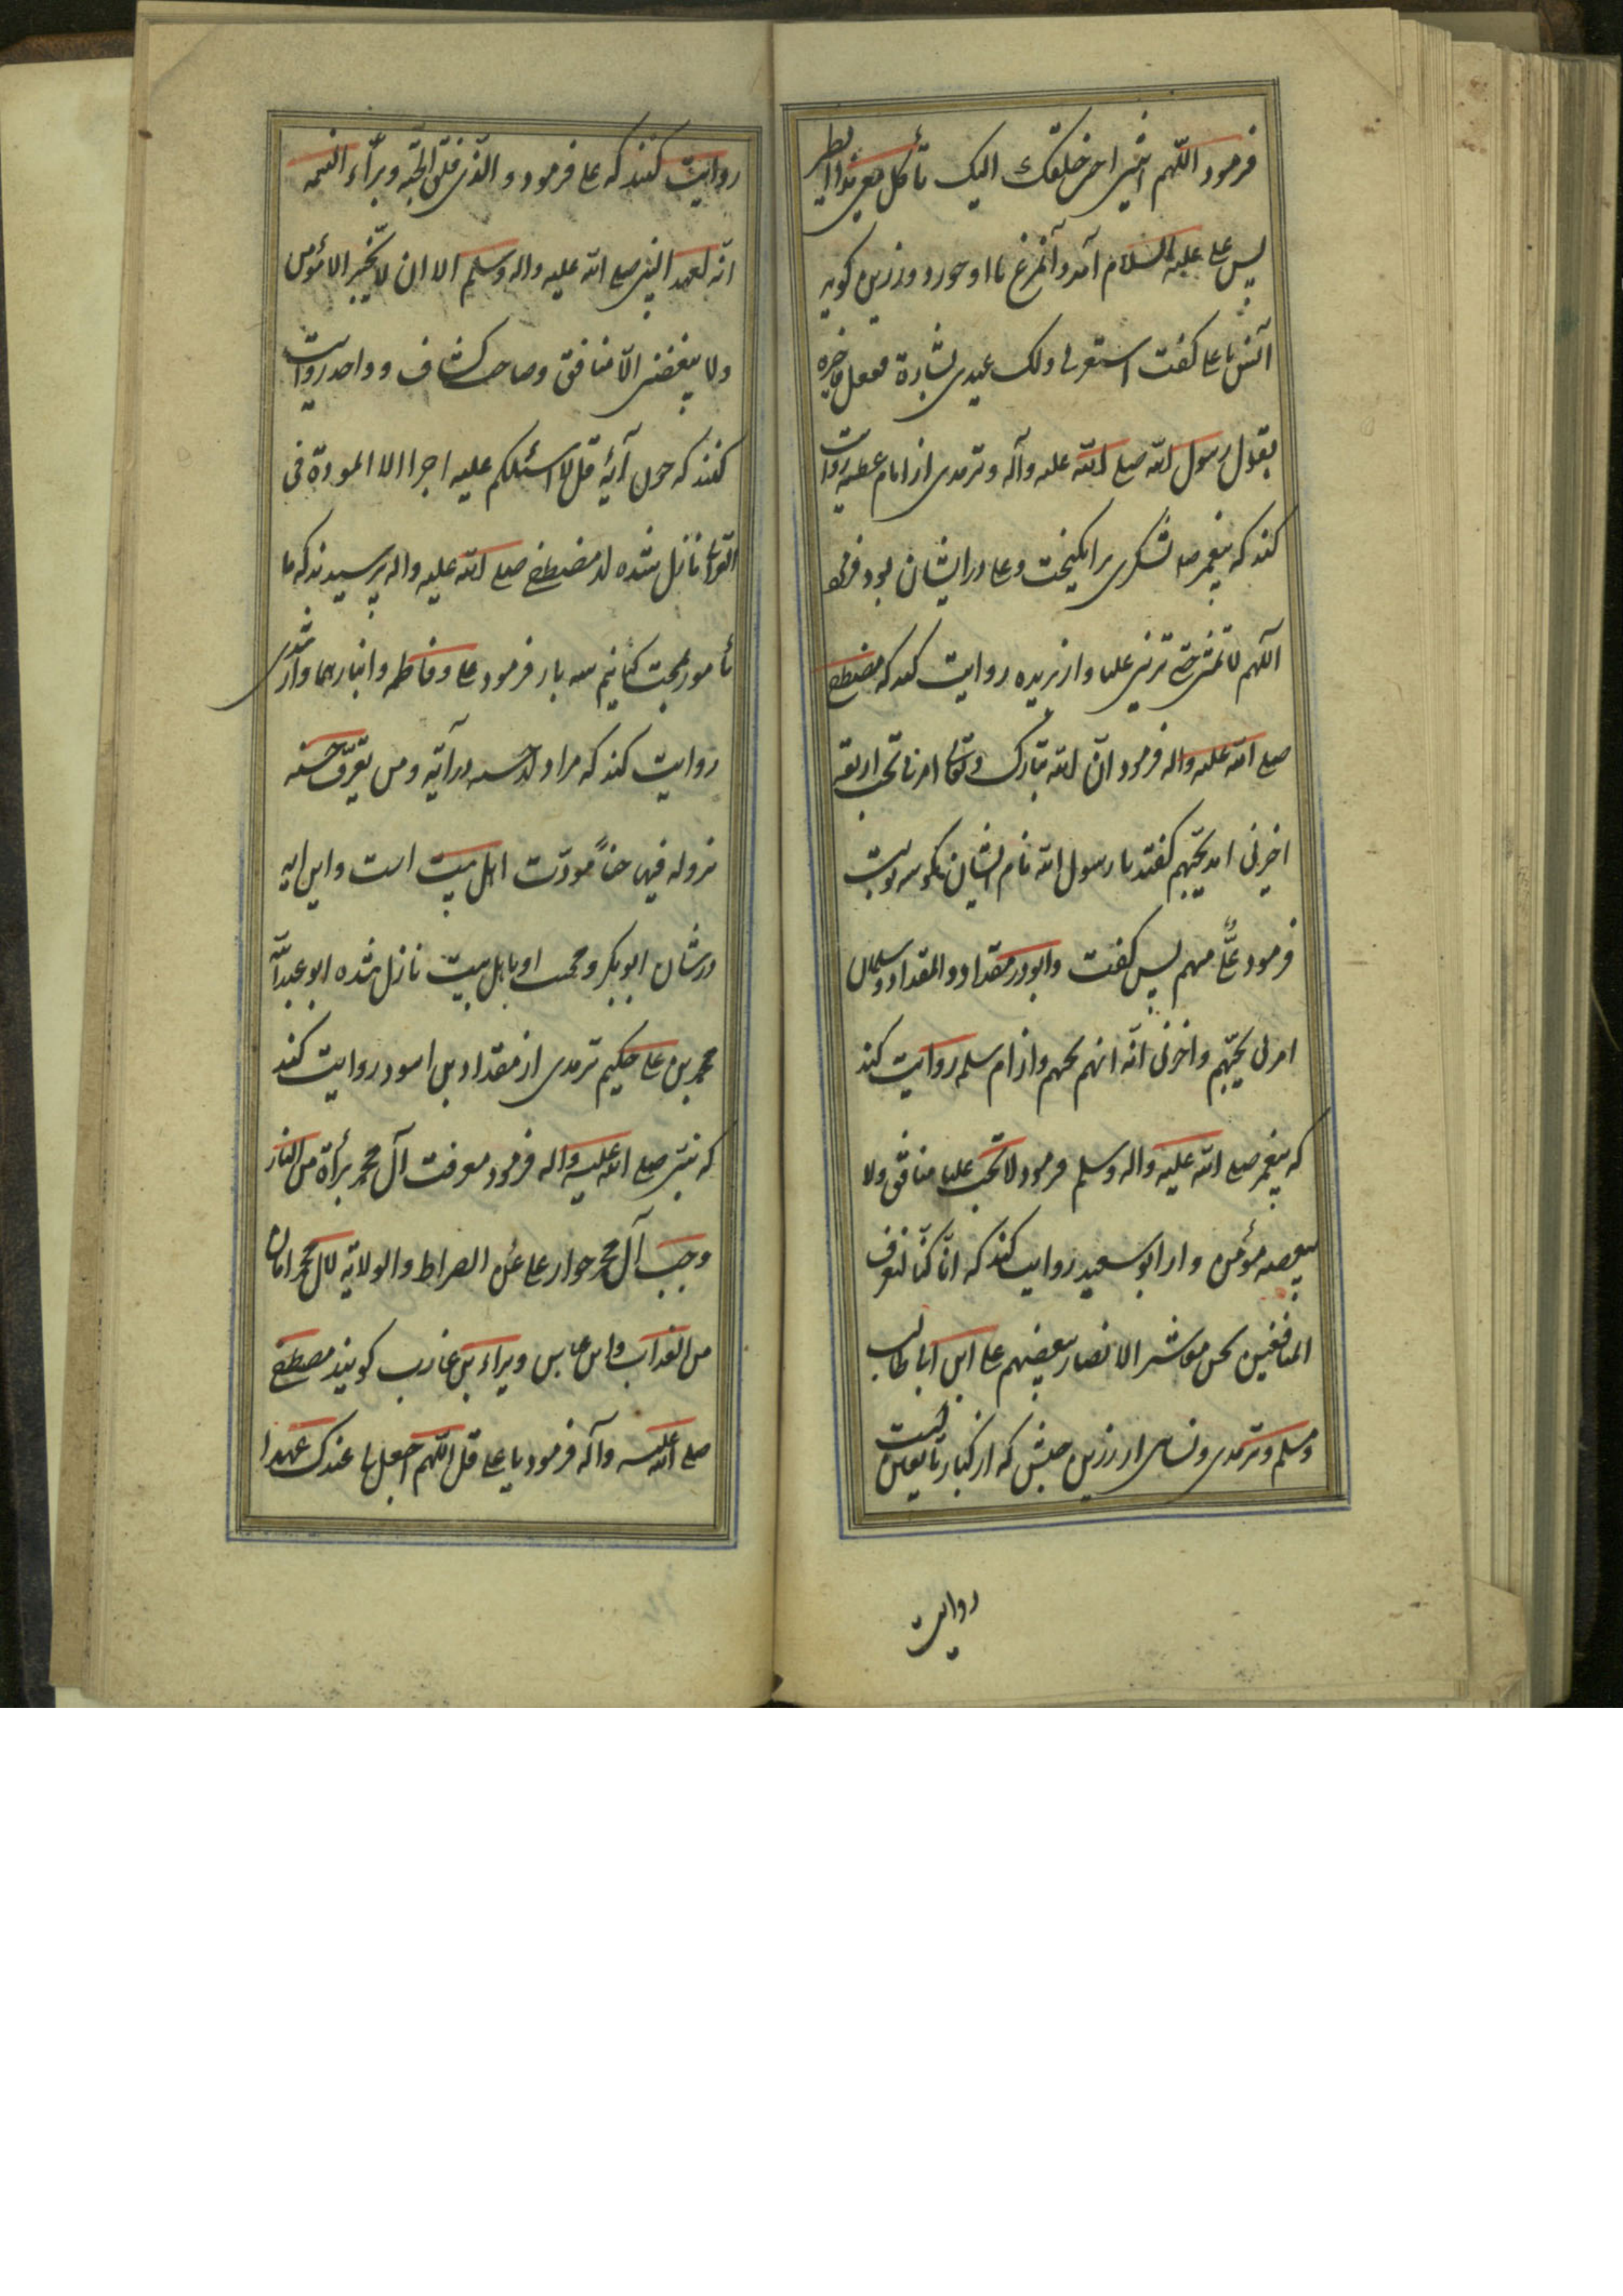 فرمود اللّهم ائتنی احب خلقک الیک تأکل معی هذا الطیر
پس علی علیه السلام آمد و آنمرغ با او خورد و رزین کوید
انس با علی کفت استغفر لی ولک عندی بشارة ففعل فاخبره
بقول رسول الله صلی الله علیه وآله و ترمدی از امام عطیه روایت
کند که پیغمبر صا لشکری برانکیخت و علی در ایشان بود فرمود
اللّهم لا تمتنی حتی ترینی علیا و از بریده روایت کند که مصطفی
صلی الله علیه واله فرمود انّ الله تبارک وتعالی امرنا بحب اربعة
اخبرنی انه یحبّهم کفتند یا رسول الله نام ایشان بکو سه نوبت
فرمود علیٌّ منهم پس کفت وابوذر مقداد و المقداد و سلمان
امرنی بحبّهم واخبرنی انّه انهم یحبهم و از ام سلمه روایت کند
که پیغمبر صلی الله علیه واله وسلم فرمود لا یحب علیا منافق ولا
یبغضه مؤمن و از ابو سعید روایت کند که انّا کنّا لنعرف
المنافقین نحن معاشر الانصار ببغضهم علی ابن ابی طالب
و مسلم و ترمدی و نسائی از رزین حبیش که از کبار تابعین است
روایت
روایت کنند که علی فرمود و الّذی فلق الحبّه و برّاء النسمه
انّه لعهد النبی صلی الله علیه واله وسلم الا ان لا یحبنی الا مؤمن
ولا یبغضنی الّا منافق و صاحب کشاف و واحد روایت
کنند که چون آیهٔ قل لا اسئلکم علیه اجرا الا المودة فی
القربی نازل شده از مصطفی صلی الله علیه واله پرسیدند که ما
مأمور بمحبت کیانیم سه بار فرمود علی و فاطمه و ابناهما و از سدی
روایت کند که مراد از حسنه در آیه و من یقترف حسنه
نزد له فیها حسناً مودّت اهل بیت است و این آیه
در شان ابو بکر و محبت او باهل بیت نازل شده ابو عبدالله
محمد بن علی حکیم ترمدی از مقداد بن اسود روایت کند
که نبی صلی الله علیه واله فرمود معرفت آل محمد برأة من النار
و حب آل محمد جواز علی الصراط و الولایة لال محمد امان
من العذاب و ابن عباس و براء بن عازب کویند مصطفی
صلی الله علیه وآله فرمود یا علی قل اللّهم اجعل لی عندک عهدا